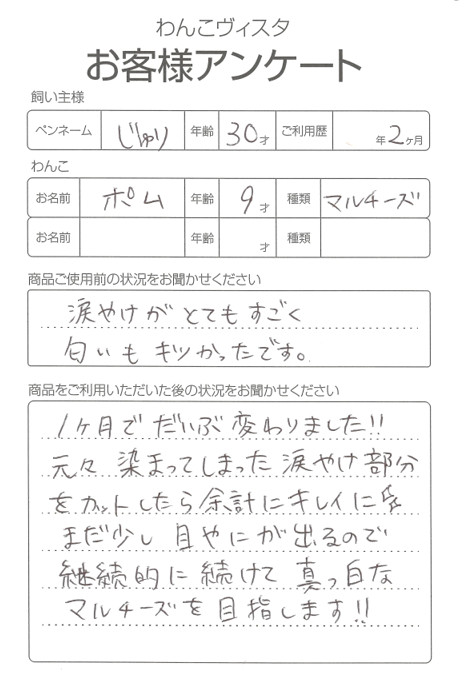 わんこヴィスタ
お客様アンケート
飼い主様
ペンネーム じゅり 年齢 30才 ご利用歴 年2ヶ月
わんこ
お名前 ポム 年齢 9才 種類 マルチーズ
お名前 年齢 才 種類
商品ご使用前の状況をお聞かせください
涙やけが とてもすごく
匂いも キツかったです。
商品をご利用いただいた後の状況をお聞かせください
1ヶ月で だいぶ変わりました!!
元々 染まってしまった涙やけ部分
をカットしたら余計にキレイに
まだ少し 目やにが出るので
継続的に 続けて 真っ白な
マルチーズを目指します!!